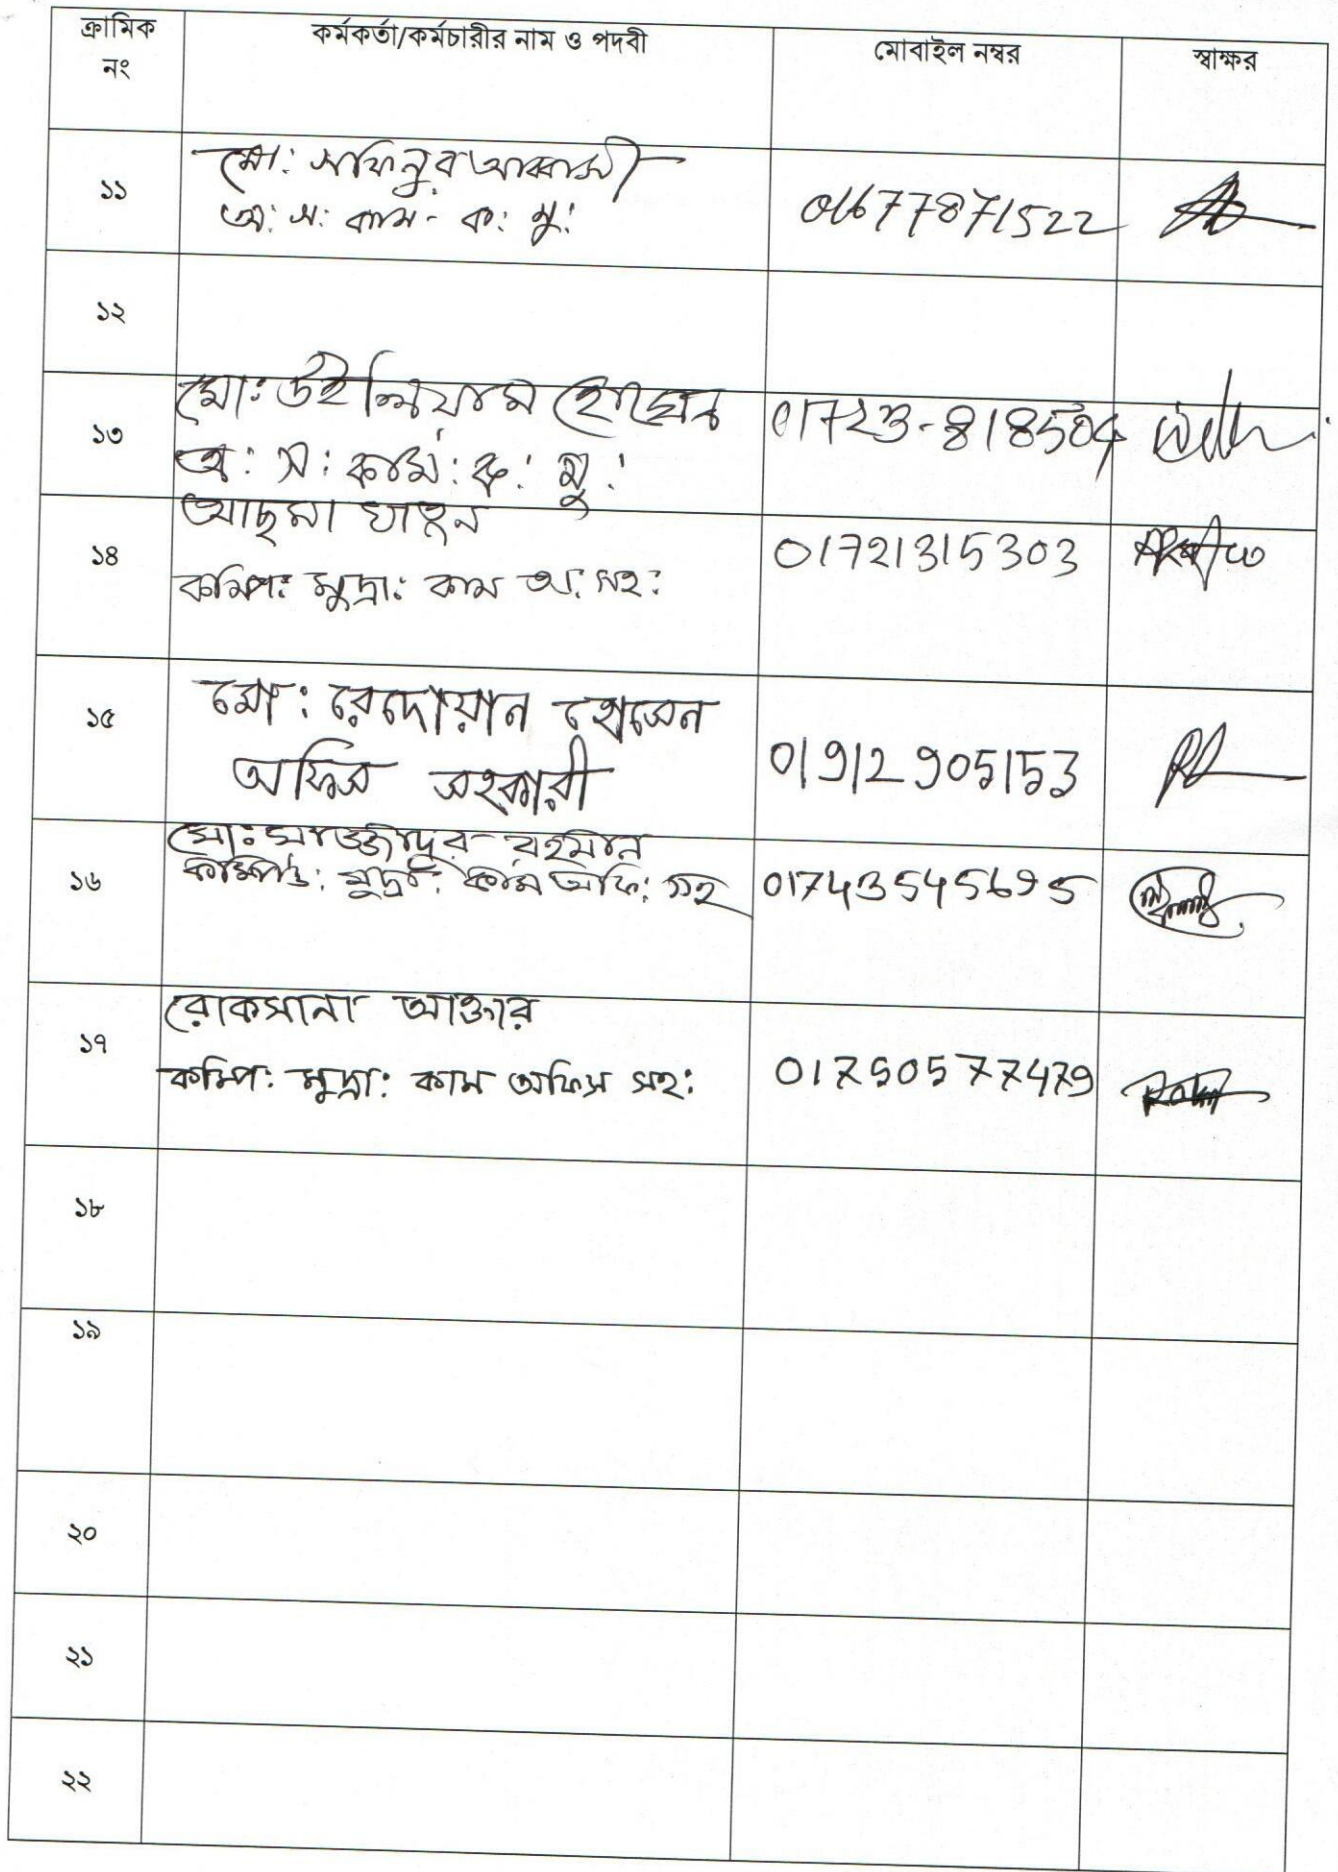 ক্রামিক নং
কর্মকর্তা/কর্মচারীর নাম ও পদবী
মোবাইল নম্বর
স্বাক্ষর
১১
মো: সফিনুর আব্বাসী
অ: স: কাম- ক: মু:
01677871522
১২
১৩
মো: উইলিয়াম হোসেন
অ: স: কাম: ক: মু:
01723-818504
১৪
আছমা খাতুন
কম্পি: মুদ্রা: কাম অ: সহ:
01721315303
১৫
মো: রেদোয়ান হোসেন
অফিস সহকারী
01912905153
১৬
মো: রহমান
মুদ্রা: কাম অফি: সহ
01743545695
১৭
রোকসানা আক্তার
কম্পি: মুদ্রা: কাম অফিস সহ:
01750577479
১৮
১৯
২০
২১
২২